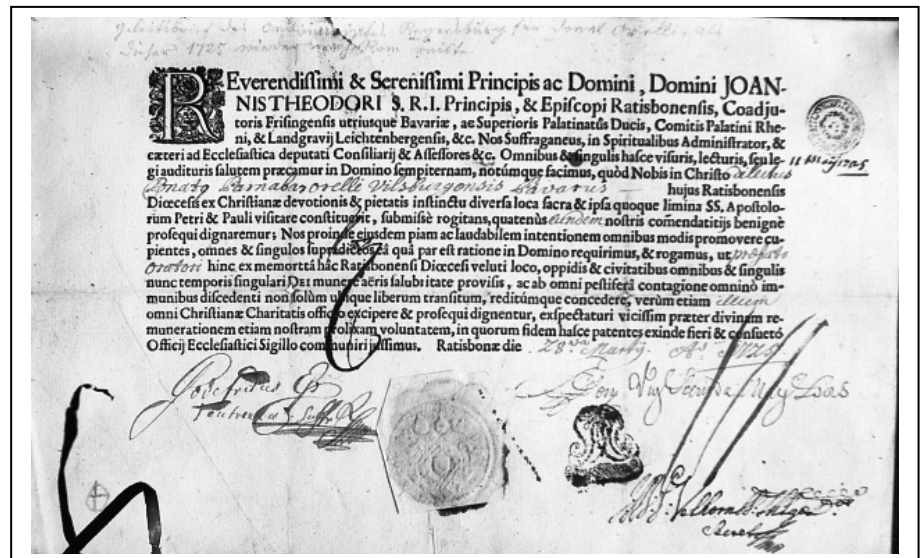 Geleitsbrief des Ordinariates Regensburg für
dieser 1725 wieder
REverendissimi & Serenissimi Principis ac Domini, Domini JOAN-
NIS THEODORI S. R. I. Principis, & Episcopi Ratisbonensis, Coadju-
toris Frisingensis utriusque Bavariæ, ac Superioris Palatinatûs Ducis, Comitis Palatini Rhe-
ni, & Landgravij Leichtenbergensis, &c. Nos Suffraganeus, in Spiritualibus Administrator, &
cæteri ad Ecclesiastica deputati Consiliarij & Assessores &c. Omnibus & singulis hasce visuris, lecturis, seu le-
gi audituris salutem præcamur in Domino sempiternam, notúmque facimus, quòd Nobis in Christo dilectus
Donatus Barnabas Orelli Vilsburgensis Bavarus hujus Ratisbonensis
Diœcesis ex Christianæ devotionis & pietatis instinctu diversa loca sacra & ipsa quoque limina SS. Apostolo-
rum Petri & Pauli visitare constituerit, submissè rogitans, quatenùs eundem nostris comendatitijs benignè
prosequi dignaremur; Nos proinde ejusdem piam ac laudabilem intentionem omnibus modis promovere cu-
pientes, omnes & singulos supradictos eâ quâ par est ratione in Domino requirimus, & rogamus, ut præfato
Oratori hinc ex memorata hâc Ratisbonensi Diœcesi veluti loco, oppidis & civitatibus omnibus & singulis
nunc temporis singulari DEI munere aëris salubritate provisis, ac ab omni pestiferâ contagione omninò im-
munibus discedenti non solùm ubique liberum transitum, reditúmque concedere, verùm etiam illum
omni Christianæ Charitatis officio excipere & prosequi dignentur, exspectaturi vicissim præter divinam re-
munerationem etiam nostram prolixam voluntatem, in quorum fidem hasce patentes exinde fieri & consuetò
Officij Ecclesiastici Sigillo communiri jussimus. Ratisbonæ die 28va Martij Ao 1725
Godefridus